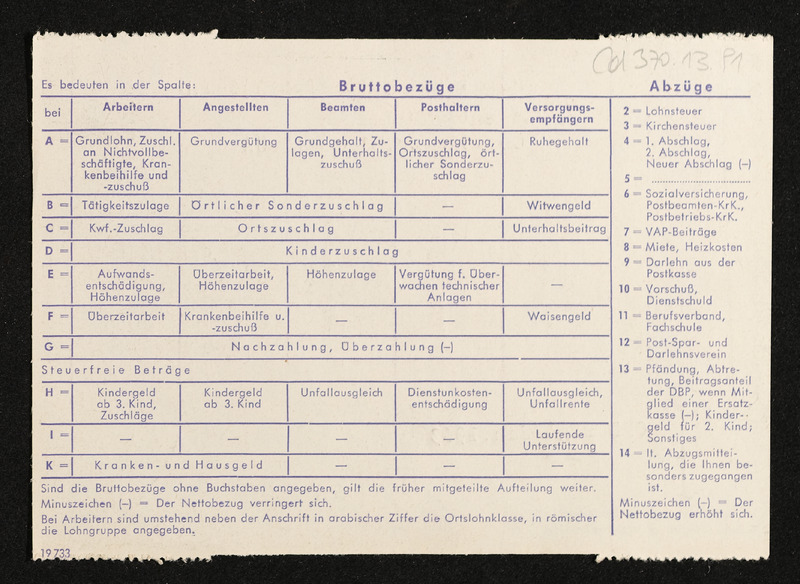 Cd 370.13.P1
Es bedeuten in der Spalte:
Bruttobezüge
Abzüge
bei
Arbeitern
Angestellten
Beamten
Posthaltern
Versorgungs-
empfängern
A =
Grundlohn, Zuschl.
an Nichtvollbe-
schäftigte, Kran-
kenbeihilfe und
-zuschuß
Grundvergütung
Grundgehalt, Zu-
lagen, Unterhalts-
zuschuß
Grundvergütung,
Ortszuschlag, ört-
licher Sonderzu-
schlag
Ruhegehalt
B =
Tätigkeitszulage
Örtlicher Sonderzuschlag
—
Witwengeld
C =
Kwf.-Zuschlag
Ortszuschlag
—
Unterhaltsbeitrag
D =
Kinderzuschlag
E =
Aufwands-
entschädigung,
Höhenzulage
Überzeitarbeit,
Höhenzulage
Höhenzulage
Vergütung f. Über-
wachen technischer
Anlagen
—
F =
Überzeitarbeit
Krankenbeihilfe u.
-zuschuß
—
—
Waisengeld
G =
Nachzahlung, Überzahlung (–)
Steuerfreie Beträge
H =
Kindergeld
ab 3. Kind,
Zuschläge
Kindergeld
ab 3. Kind
Unfallausgleich
Dienstunkosten-
entschädigung
Unfallausgleich,
Unfallrente
I =
—
—
—
—
Laufende
Unterstützung
K =
Kranken- und Hausgeld
—
—
—
Sind die Bruttobezüge ohne Buchstaben angegeben, gilt die früher mitgeteilte Aufteilung weiter.
Minuszeichen (–) = Der Nettobezug verringert sich.
Bei Arbeitern sind umstehend neben der Anschrift in arabischer Ziffer die Ortslohnklasse, in römischer
die Lohngruppe angegeben.
19 733
2 = Lohnsteuer
3 = Kirchensteuer
4 = 1. Abschlag,
2. Abschlag,
Neuer Abschlag (–)
5 = ..............................
6 = Sozialversicherung,
Postbeamten-KrK.,
Postbetriebs-KrK.
7 = VAP-Beiträge
8 = Miete, Heizkosten
9 = Darlehn aus der
Postkasse
10 = Vorschuß,
Dienstschuld
11 = Berufsverband,
Fachschule
12 = Post-Spar- und
Darlehnsverein
13 = Pfändung, Abtre-
tung, Beitragsanteil
der DBP, wenn Mit-
glied einer Ersatz-
kasse (–); Kinder-
geld für 2. Kind;
Sonstiges
14 = lt. Abzugsmittei-
lung, die Ihnen be-
sonders zugegangen
ist.
Minuszeichen (–) = Der
Nettobezug erhöht sich.